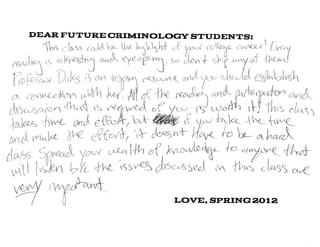 DEAR FUTURE CRIMINOLOGY STUDENTS:
This class could be the highlight of your college career! Every
reading is interesting and eye opening, so don't skip any of them!
Professor is an inspiring resource, and you should establish
a connection with her. All of the reading and participation and
discussion that is required of you IS worth it! This class
takes time and effort, but if you take the time
and make the effort, it doesn't have to be a hard
class. Spread your wealth of knowledge to anyone that
will listen b/c the issues discussed in this class are
very important.
LOVE, SPRING 2012